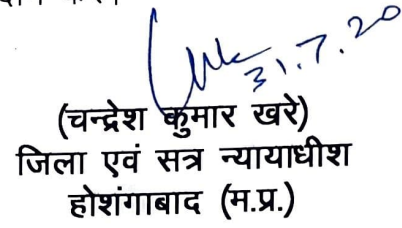 31.7.20
(चन्द्रेश कुमार खरे)
जिला एवं सत्र न्यायाधीश
होशंगाबाद (म.प्र.)